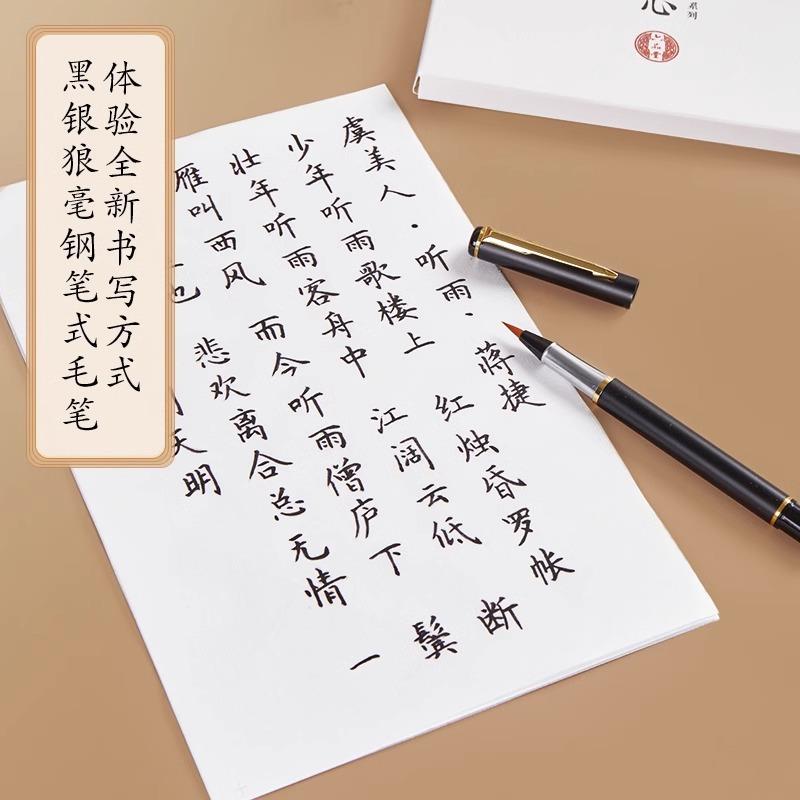 体验全新书写方式
黑银狼毫钢笔式毛笔
虞美人·听雨·蒋捷
少年听雨歌楼上 红烛昏罗帐
壮年听雨客舟中 江阔云低 断
雁叫西风 而今听雨僧庐下 鬓
也 悲欢离合总无情 一
天明
系列